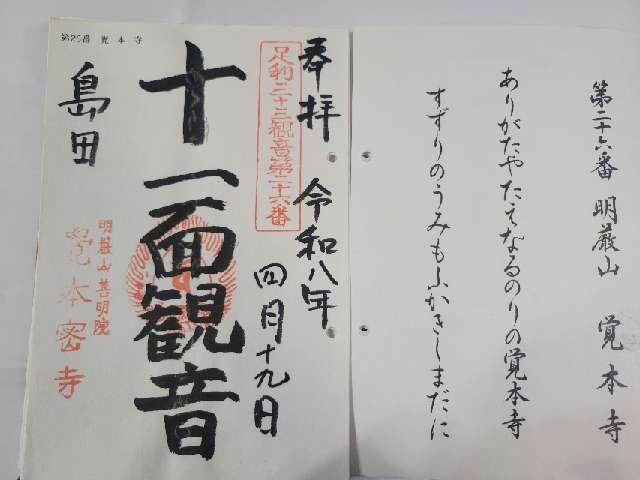 第二十六番 明厳山 覚本寺
ありがたやたえなるのりの覚本寺
すずりのうみもふかきしまだに
奉拝 令和八年
四月十九日
足利三十三観音第二十六番
十一面観音
明厳山善明院
覚本密寺
島田
第26番 覚本寺